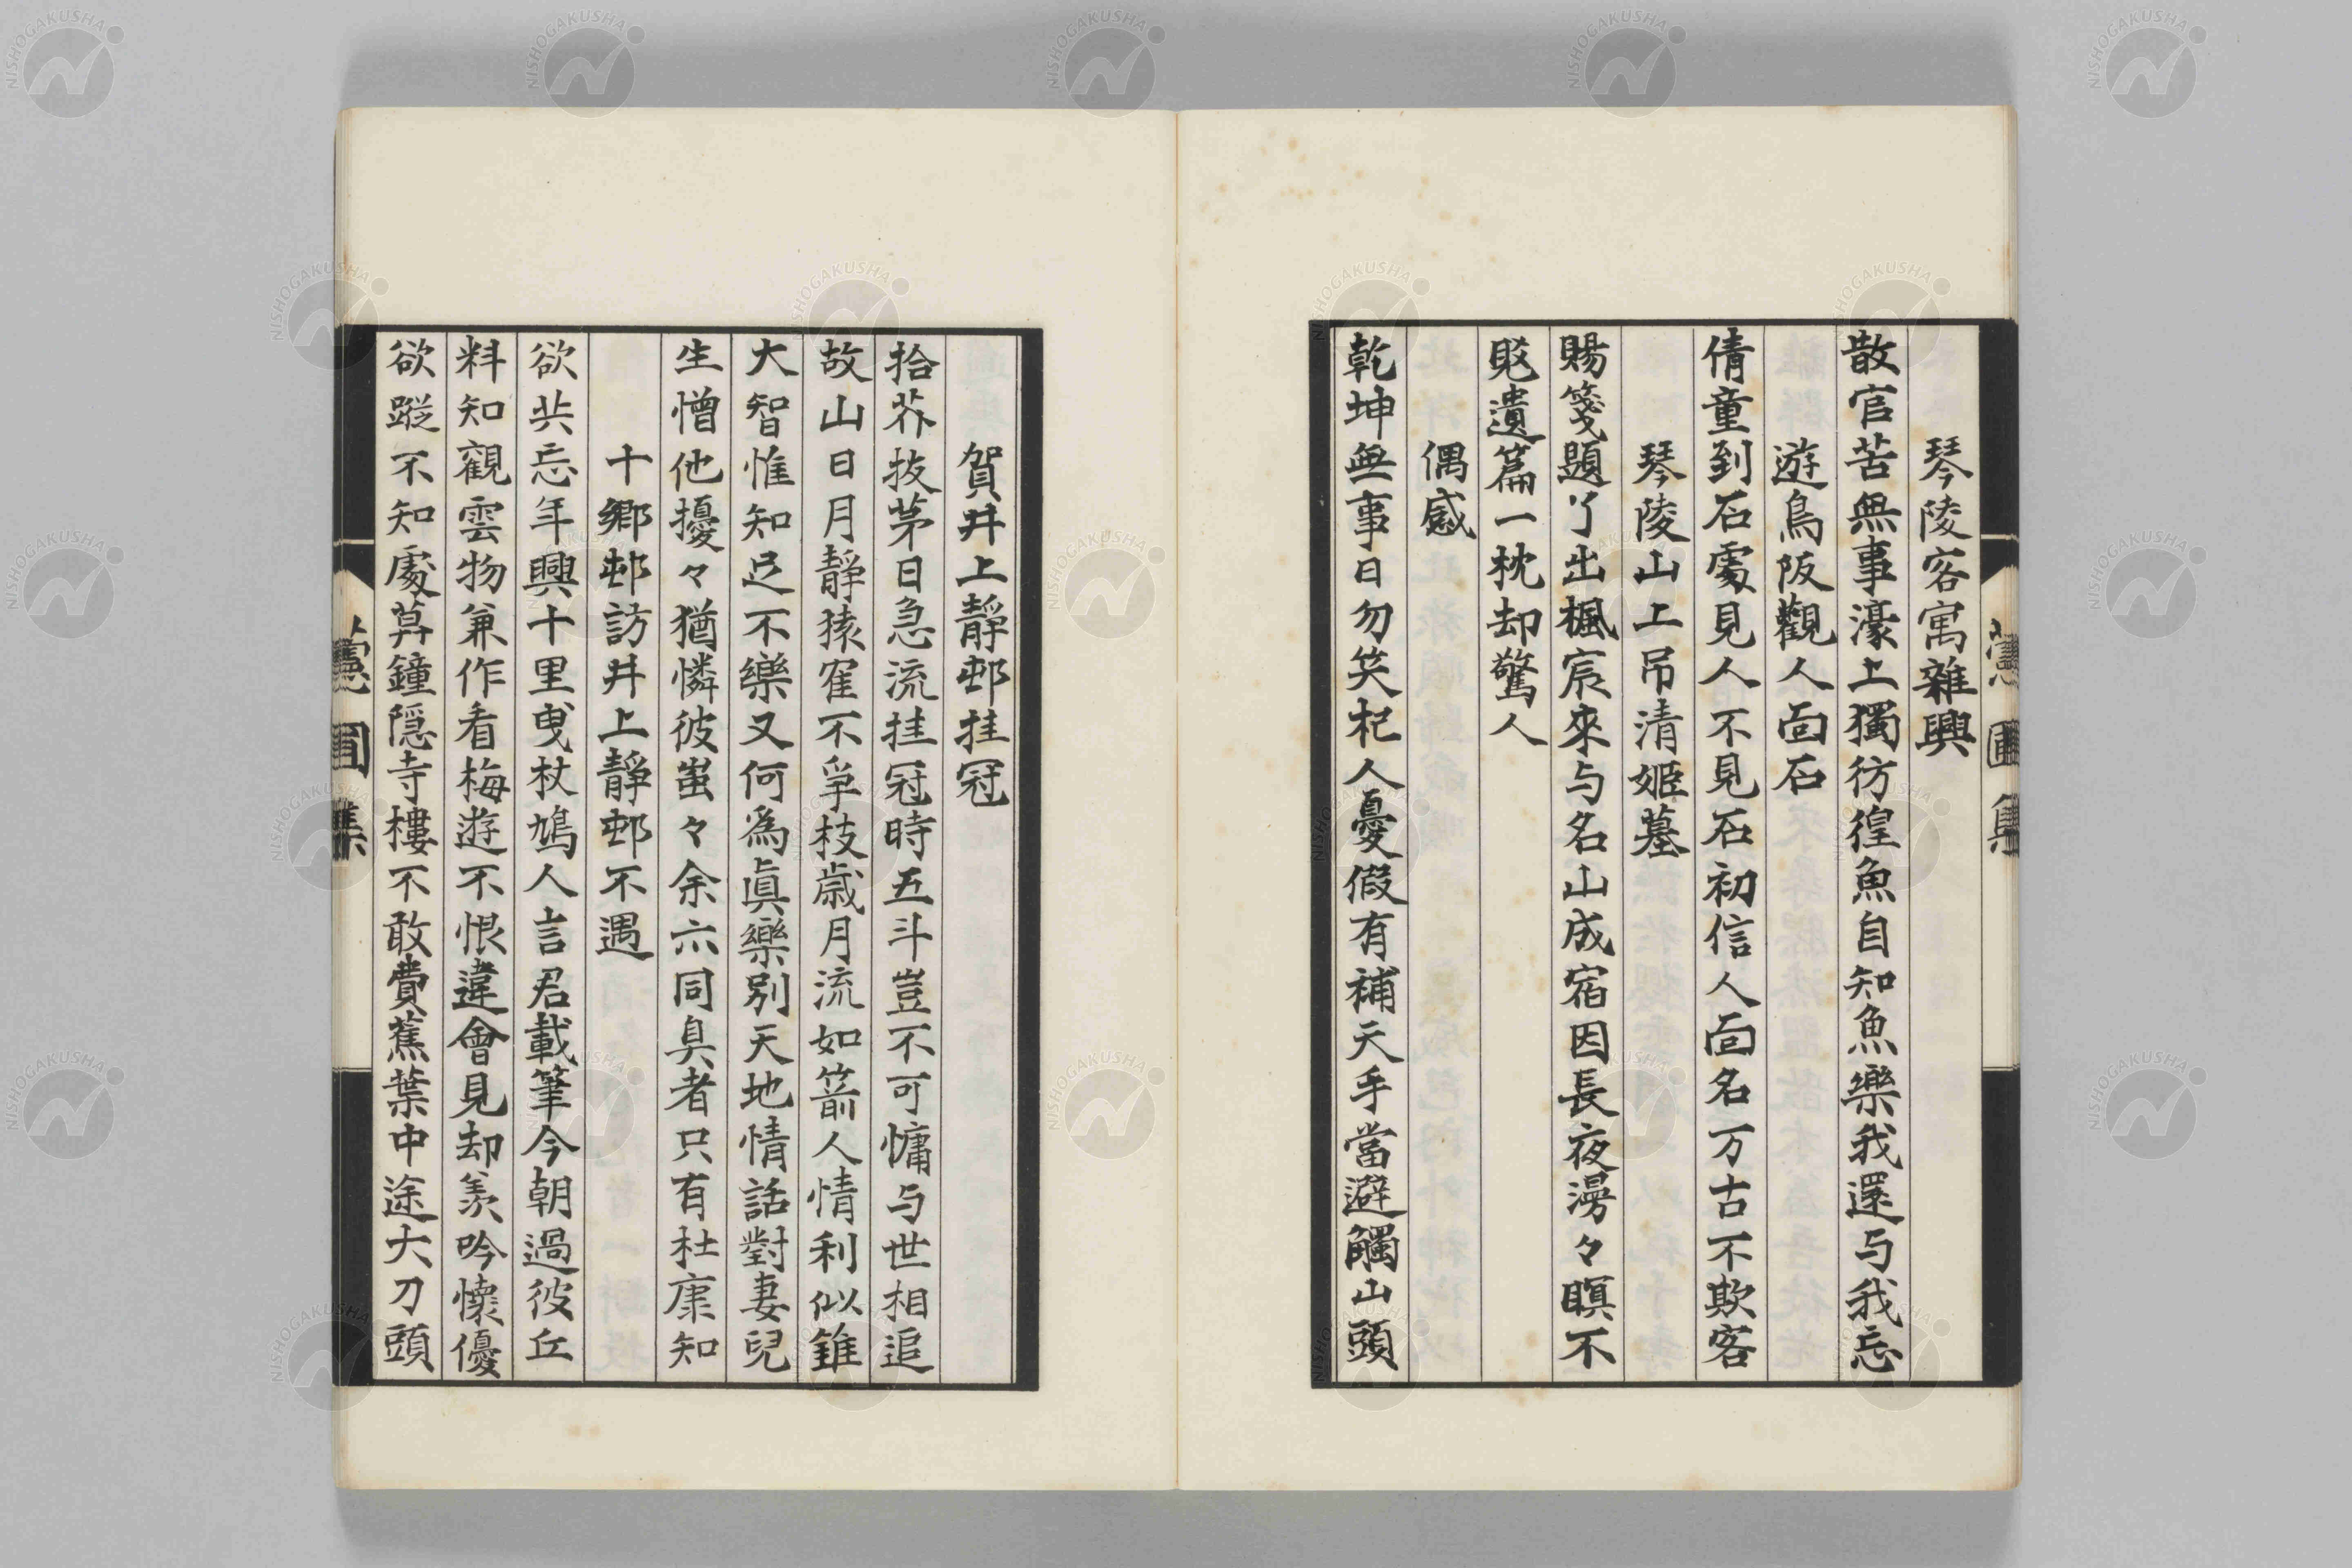 琴陵客寓雜興
散官苦無事濠上獨彷徨魚自知魚樂我還与我忘
遊鳥阪觀人面石
倩童到石處見人不見石初信人面名万古不欺客
琴陵山上吊清姬墓
賜箋題了出楓宸來与名山成宿因長夜漫々瞑不
眤遺篇一枕却驚人
偶感
乾坤無事日勿笑杞人憂假有補天手當避觸山頭
賀井上靜邨挂冠
拾芥抜茅日急流挂冠時五斗豈不可慵与世相追
故山日月靜猿寉不爭枝歳月流如箭人情利似錐
大智惟知足不樂又何爲眞樂別天地情話對妻兒
生憎他擾々猶憐彼蚩々余六同臭者只有杜康知
十郷邨訪井上靜邨不遇
欲共忘年興十里曳杖鳩人言君載筆今朝過彼丘
料知觀雲物兼作看梅遊不恨違會見却羨吟懷優
欲蹤不知處莫鐘隠寺樓不敢費蕉葉中途大刀頭
圃集
NISHOGAKUSHA